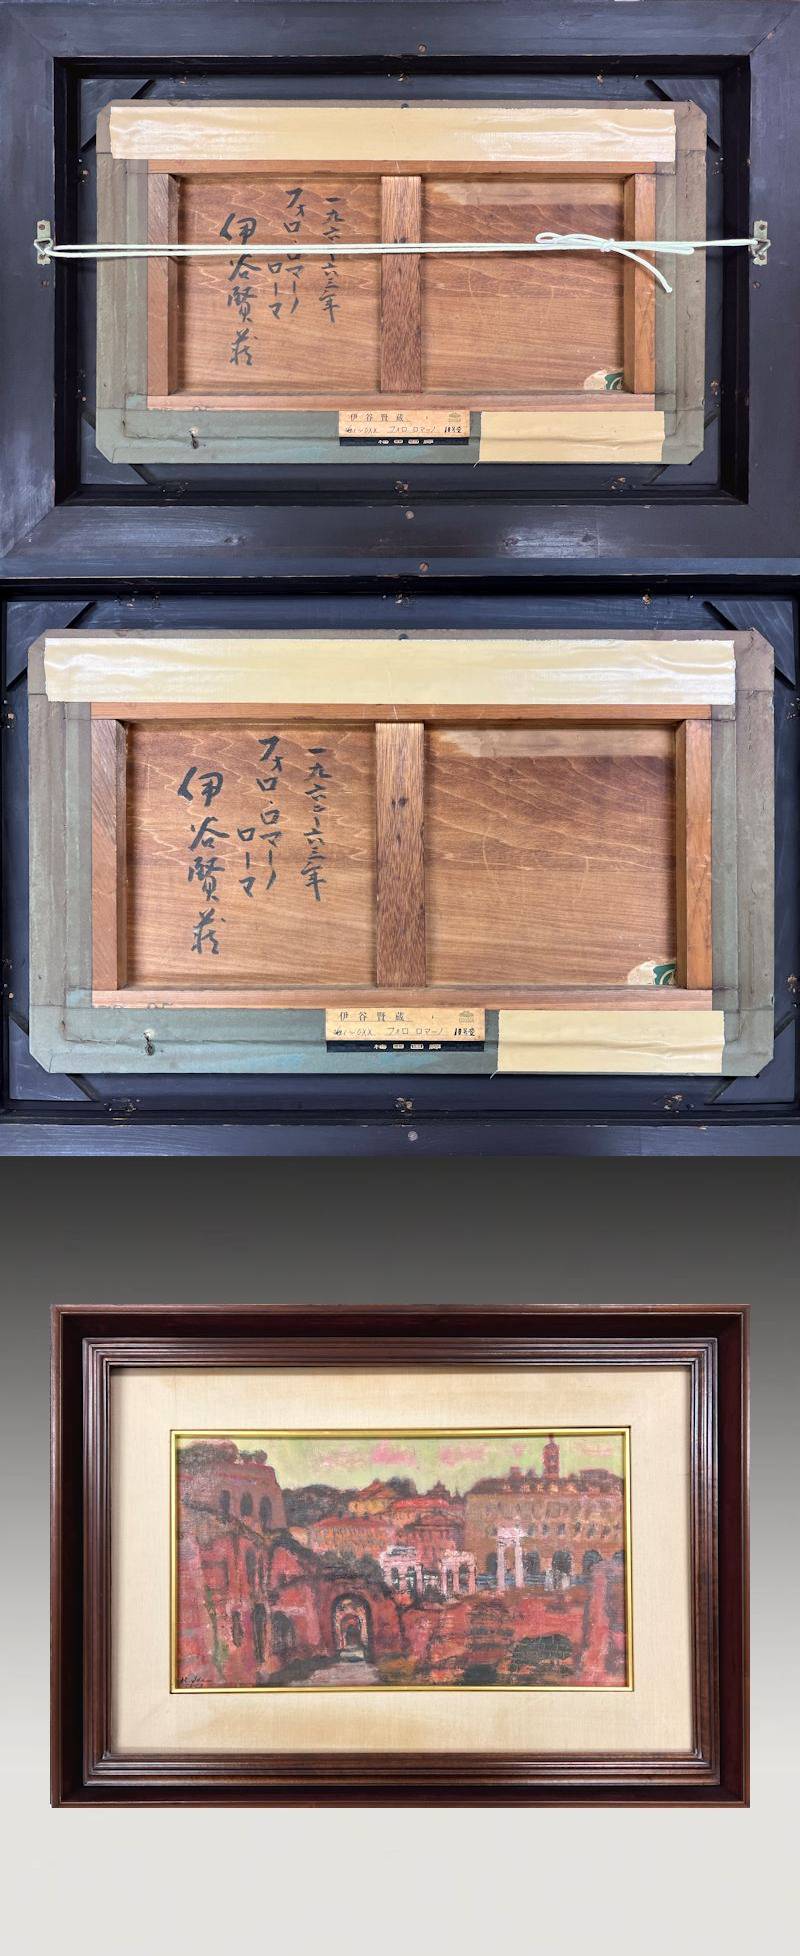 一九六二〜六三年
フォロ・ロマーノ
ローマ
伊谷賢蔵
伊谷賢蔵
フォロ ロマーノ
梅田画廊
一九六二〜六三年
フォロ・ロマーノ
ローマ
伊谷賢蔵
伊谷賢蔵
フォロ ロマーノ
梅田画廊